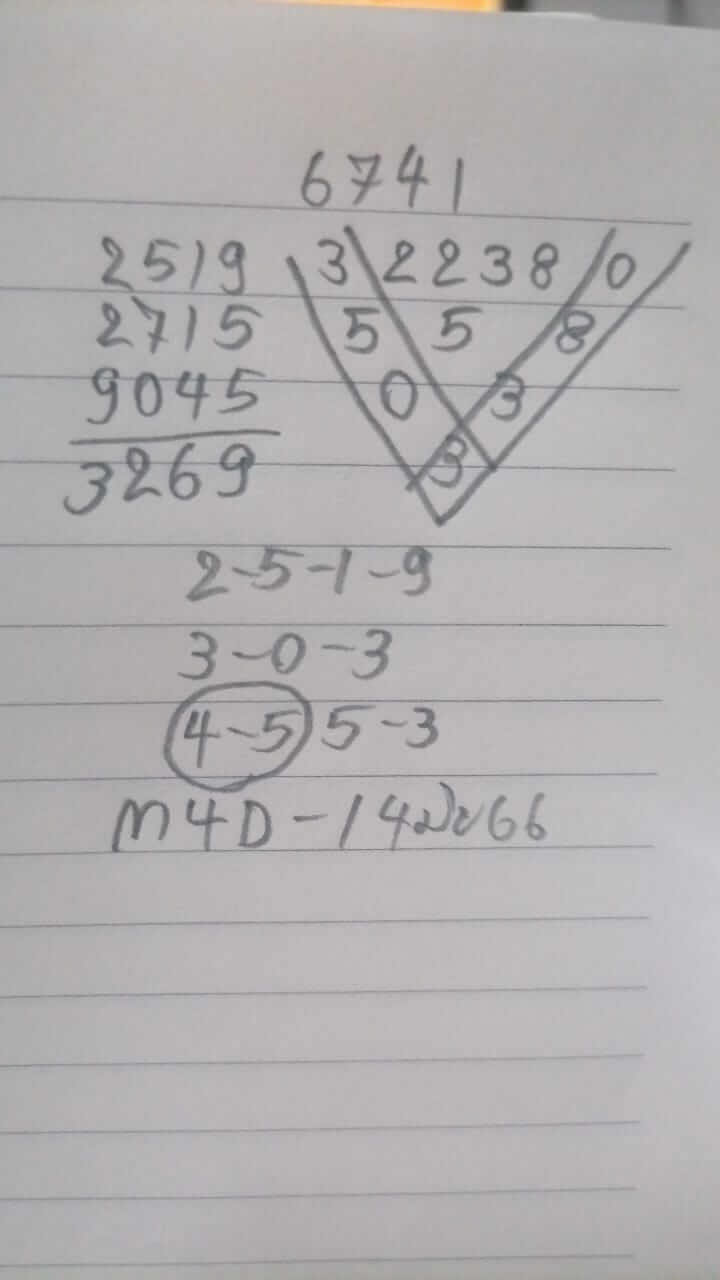 6741
2519 3 2238 0
2715 5 5 8
9045 0 3
3269 3
2-5-1-9
3-0-3
4-5 5-3
M4D-14มิย66